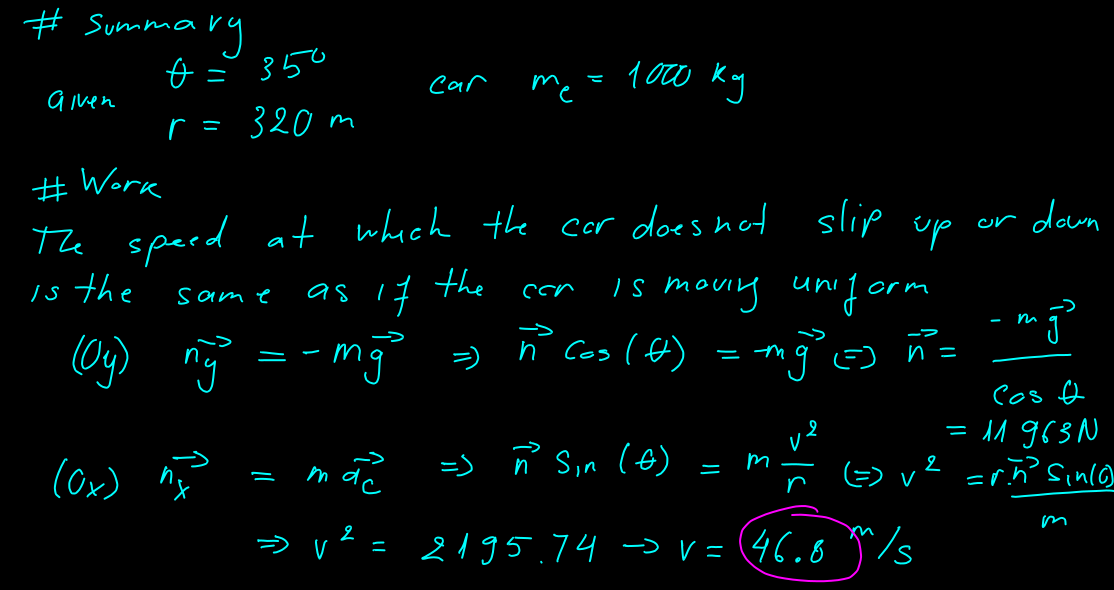 # Summary
given θ = 35° car m_c = 1000 kg
r = 320 m
# Work
The speed at which the car does not slip up or down
is the same as if the car is moving uniform
(Oy) n⃗_y = -mg⃗ => n⃗ cos(θ) = -mg⃗ <=> n⃗ = -mg⃗ / cos θ
= 11963N
(Ox) n⃗_x = m a⃗_c => n⃗ sin(θ) = m v²/r <=> v² = r.n⃗ sin(θ) / m
=> v² = 2195.74 → v = 46.8 m/s